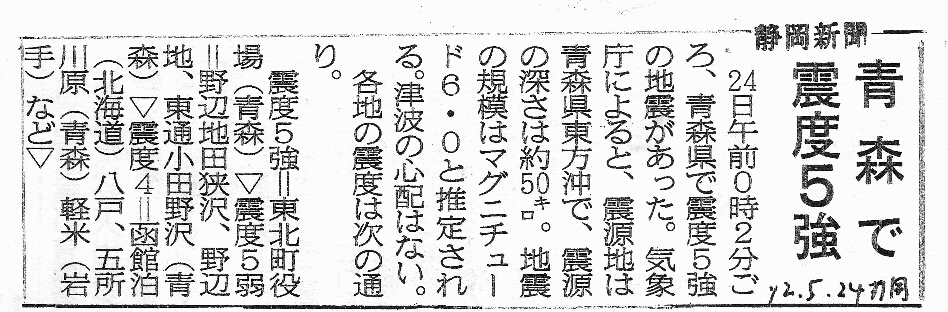 静岡新聞
青森で
震度5強
24日午前0時2分ご
ろ、青森県で震度5強
の地震があった。気象
庁によると、震源地は
青森県東方沖で、震源
の深さは約50㌔。地震
の規模はマグニチュー
ド6・0と推定され
る。津波の心配はない。
各地の震度は次の通
り。
震度5強＝東北町役
場（青森）▽震度5弱
＝野辺地田狭沢、野辺
地、東通小田野沢（青
森）▽震度4＝函館泊
（北海道）八戸、五所
川原（青森）軽米（岩
手）など▽
y2.5.24